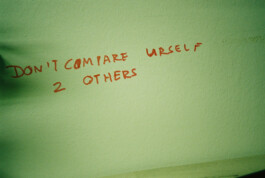 DON'T COMPARE URSELF
2 OTHERS